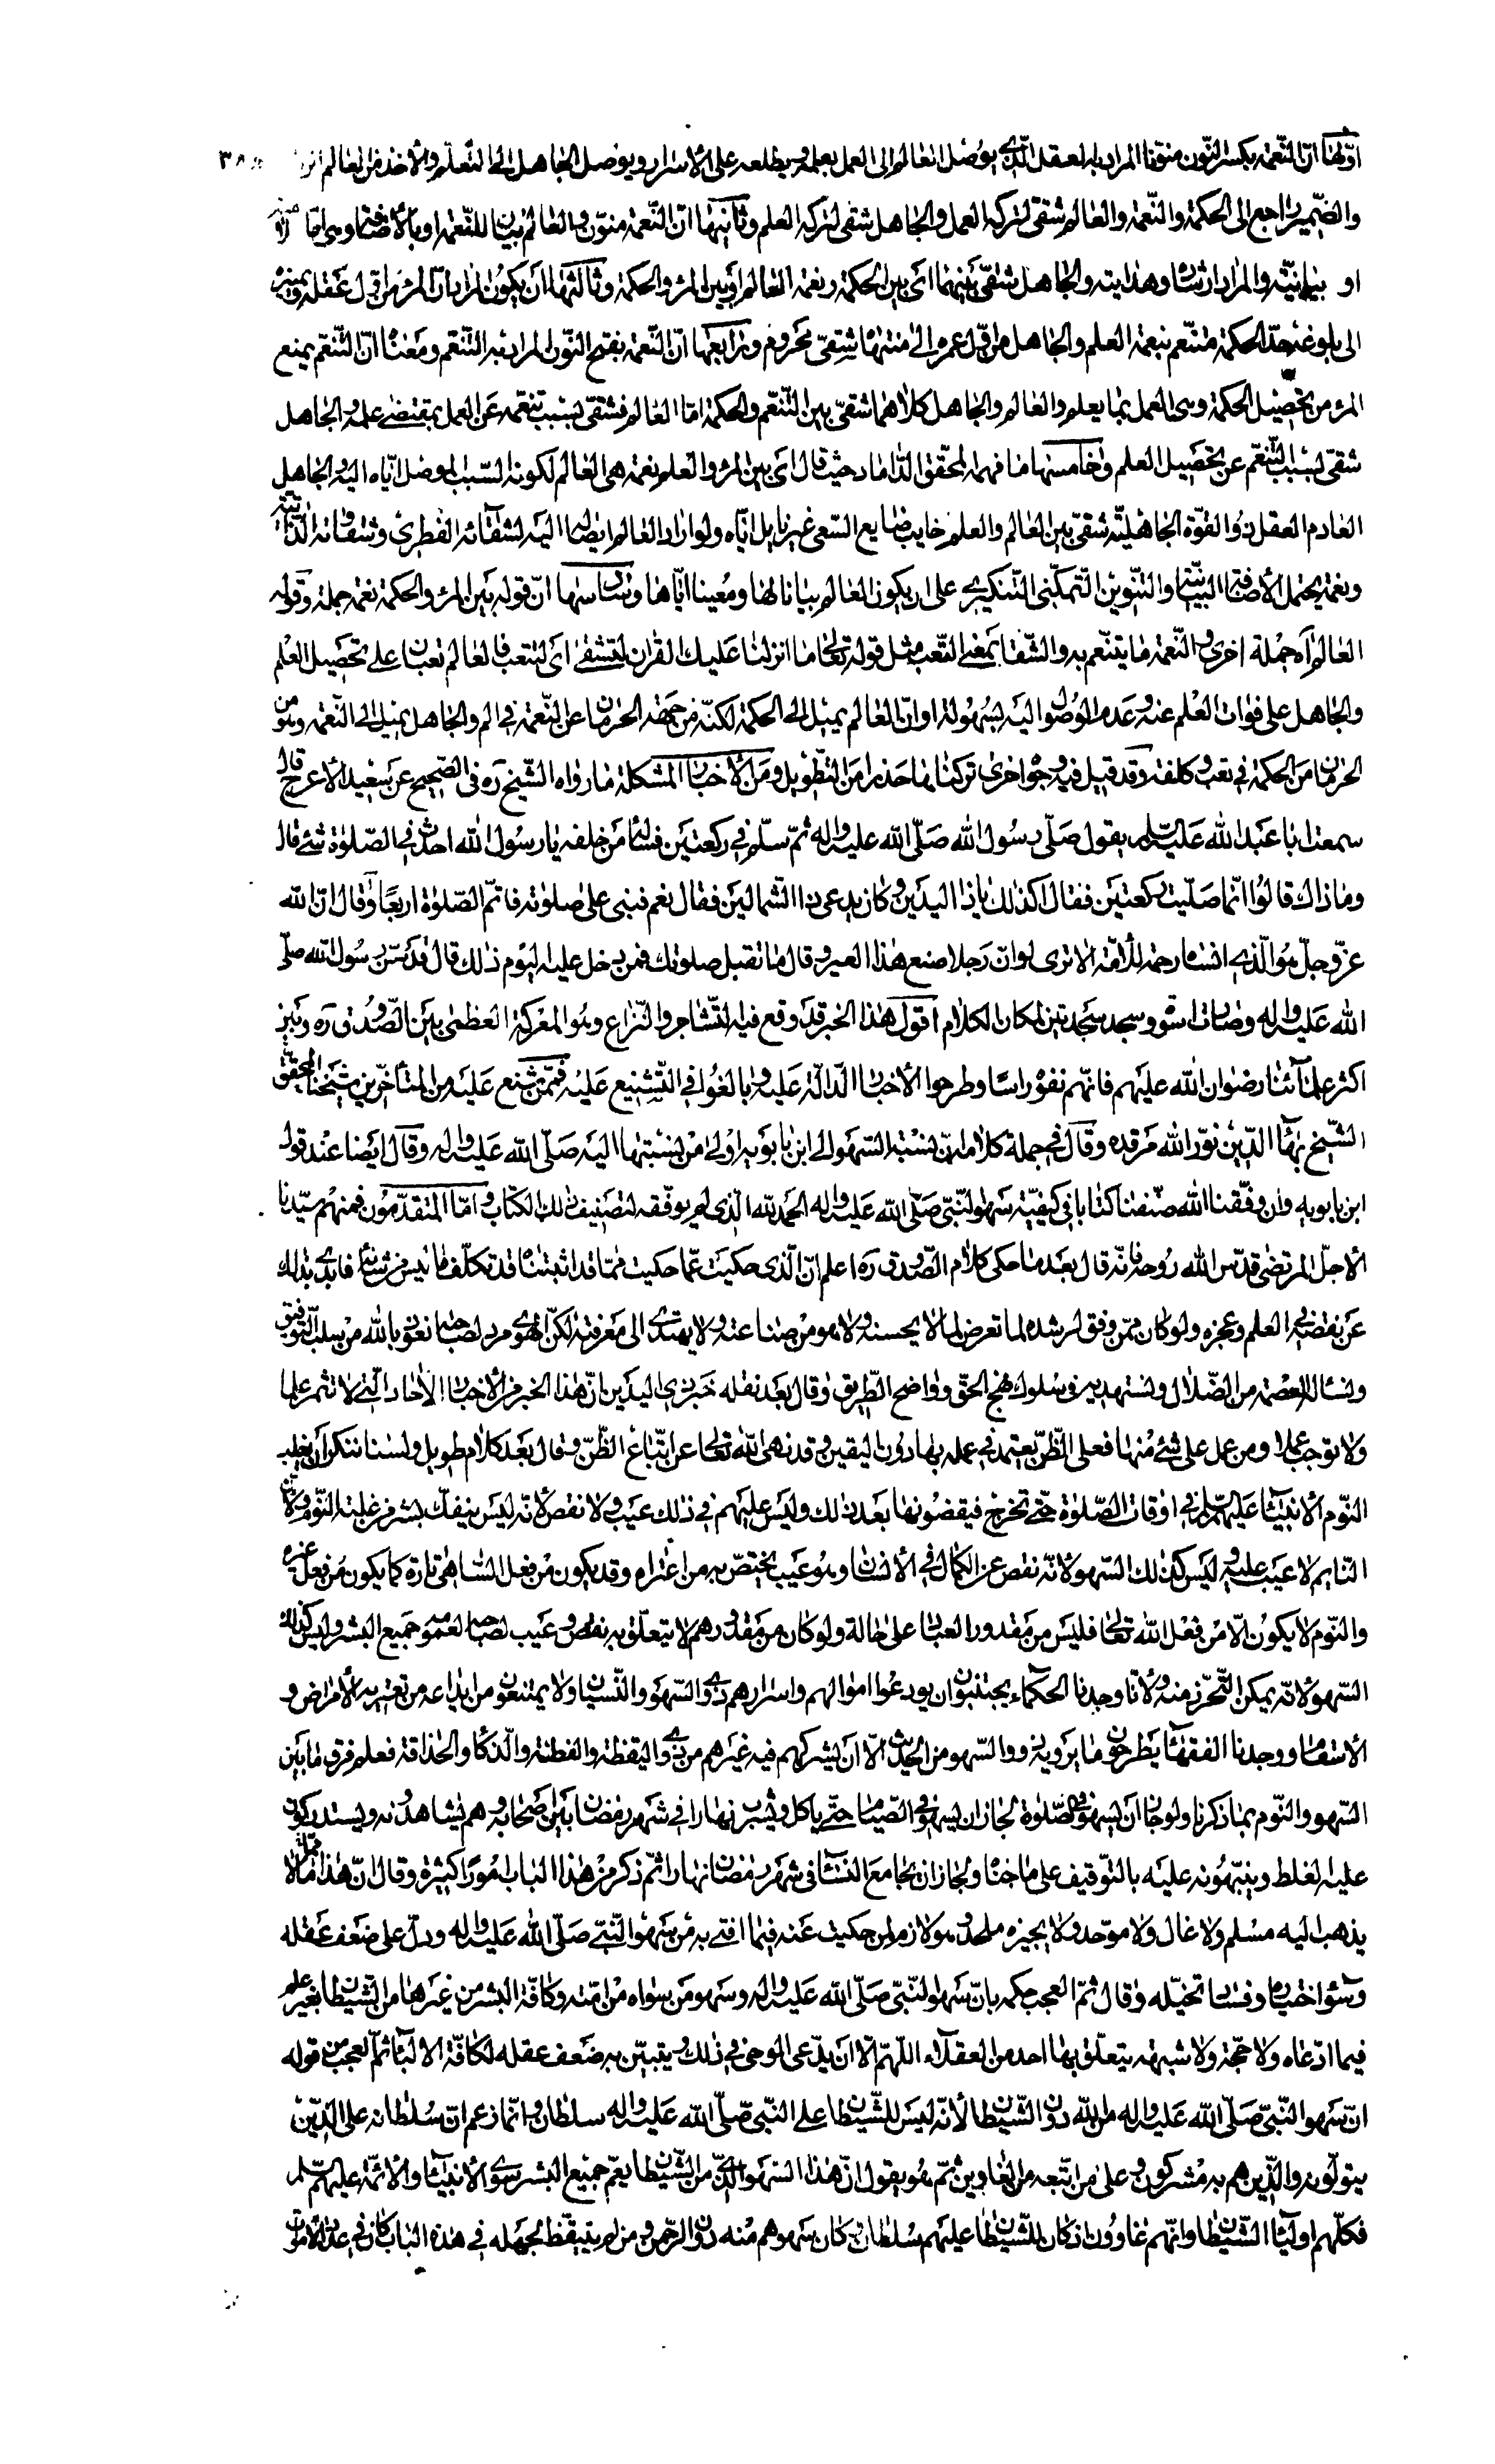 اولها ان النعمة بكسر النون منونا المراد به العقل الذي يوصل العالم الى العمل بعلمه ويطلعه على الأسرار ويوصل الجاهل الى التعلم والأخذ من العالم
والضمير راجع الى الحكمة والنعمة والعالم شقي لتركه العمل والجاهل شقي لتركه العلم وثانيها ان النعمة منون والعالم بيان للنعمة او بالأضافة وهي اما
او بيانية والمراد ارشاده وهدايته والجاهل شقي بينهما اى بين الحكمة ونعمة العالم او بين المرء والحكمة وثالثها ان يكون المراد ان المرء من اول عقله وتميزه
الى بلوغه حد الحكمة متنعم بنعمة العلم والجاهل من اول عمره الى منتهاه شقي محروم ورابعها ان النعمة بفتح النون المراد به التنعم ومعناه ان التنعم يمنع
المرء من تحصيل الحكمة وهى العمل بما يعلم والعالم والجاهل كلاهما شقي بين التنعم والحكمة اما العالم فشقي بسبب تنعمه عن العمل بمقتضى علمه والجاهل
شقي بسبب التنعم عن تحصيل العلم وخامسها ما فهمه المحقق الداماد حيث قال اى بين المرء والعلم نعمة هى العالم لكونه السبب الموصل اياه اليه والجاهل
العادم العقل ذو القوة الجاهلية شقي بين العالم والعلم خايب ضايع السعى غير نايل اياه ولو اراد العالم ايصاله اليه لشقائه الفطرى وشقاوته الذاتية
ونعمة يحتمل الأضافة البيانية والتنوين التمكنى التنكيرى على ان يكون العالم بيانا لها ومعينا اياها وسادسها ان قوله بين المرء والحكمة نعمة جملة وقوله
العالم اه جملة اخرى والنعمة ما يتنعم به والشقا بمعنى التعب مثل قوله تعالى ما انزلنا عليك القران لتشقى اى لتتعب فالعالم تعبان على تحصيل العلم
والجاهل على فوات العلم عنه وعدم الوصول اليه بسهولة او ان العالم يميل الى الحكمة لكنه من جهة الحرمان عن النعمة في الم والجاهل يميل الى النعمة وهو من
الحرمان من الحكمة في تعب وكلفة وقد قيل فيه وجوه اخرى تركناها حذرا من التطويل ومن الأخبار المشكلة ما رواه الشيخ ره فى الصحيح عن سعيد الاعرج قال
سمعت ابا عبد الله عليه السلام يقول صلى رسول الله صلى الله عليه واله ثم سلم في ركعتين فسئله من خلفه يا رسول الله احدث في الصلوة شئ قال
وما ذاك قالوا انما صليت ركعتين فقال اكذلك يا ذا اليدين وكان يدعى ذا الشمالين فقال نعم فبنى على صلوته فاتم الصلوة اربعا وقال ان الله
عز وجل هو الذي انساه رحمة للأمة الا ترى لو ان رجلا صنع هذا لعير وقال ما تقبل صلوتك فمن دخل عليه اليوم ذلك قال قد سن رسول الله صلى
الله عليه واله وصارت اسوة وسجد سجدتين لمكان الكلام اقول هذا الخبر قد وقع فيه التشاجر والنزاع وهو المعركة العظمى بين الصدوق ره وبين
اكثر علمائنا رضوان الله عليهم فانهم نفوه راسا وطرحوا الأخبار الدالة عليه وبالغوا في التشنيع عليه فممن شنع عليه من المتأخرين شيخنا المحقق
الشيخ بهاء الدين نور الله مرقده وقال في جملة كلام له ان نسبة السهو الى ابن بابويه اولى من نسبتها اليه صلى الله عليه واله وقال ايضا عند قول
ابن بابويه وان وفقنا الله صنفنا كتابا في كيفية سهو النبي صلى الله عليه واله الحمد لله الذى لم يوفقه لتصنيف ذلك الكتاب واما المتقدمون فمنهم سيدنا
الأجل المرتضى قدس الله روحه فانه قال بعد ما حكى كلام الصدوق ره اعلم ان الذى حكيت عما حكيت مما قد اثبتناه قد تكلف ما ليس من شأنه فابدى بذلك
عن نقصه في العلم وعجزه ولو كان ممن وفق لرشده لما تعرض لما لا يحسنه ولا هو من صناعته ولا يهتدى الى معرفته لكن الهوى مرد لصاحبه نعوذ بالله من سلب التوفيق
ونسأله العصمة من الضلال ونستهديه في سلوك نهج الحق وواضح الطريق وقال بعد نقله خبر ذى اليدين ان هذا الخبر من الأخبار الاحاد التى لا تثمر علما
ولا توجب عملا ومن عمل على شئ منها فعلى الظن يعتمد في عمله بها دون اليقين وقد نهى الله تعالى عن اتباع الظن وقال بعد كلام طويل ولسنا ننكر ان يغلب
النوم الأنبياء عليهم السلام في اوقات الصلوة حتى تخرج فيقضونها بعد ذلك وليس عليهم في ذلك عيب ولا نقص لأنه ليس ينفك بشر من غلبة النوم ولأن
النايم لا عيب عليه وليس كذلك السهو لأنه نقص عن الكمال في الأنسان وهو عيب يختص به من اعتراه وقد يكون من فعل الساهى تارة كما يكون من فعل غيره
والنوم لا يكون الا من فعل الله تعالى فليس من مقدور العباد على حالة ولو كان من مقدورهم لا يتعلق به نقص وعيب لصاحبه لعمومه جميع البشر وليس كذلك
السهو لأنه يمكن التحرز منه ولأنا وجدنا الحكماء يجتنبون ان يودعوا اموالهم واسرارهم ذوى السهو والنسيان ولا يمتنعون من ايداعه من تعتريه الأمراض و
الأسقام ووجدنا الفقهاء يطرحون ما يرويه ذوو السهو من الحديث الا ان يشركهم فيه غيرهم من ذوى اليقظة والفطنة والذكاء والحذاقة فعلم فرق ما بين
السهو والنوم بما ذكرنا ولو جاز ان يسهو في الصلوة لجاز ان يسهو في الصيام حتى ياكل ويشرب نهارا في شهر رمضان بين اصحابه وهم يشاهدونه ويستدركون
عليه الغلط وينبهونه عليه بالتوقيف على ما جناه ولجاز ان يجامع النساء في شهر رمضان نهارا ثم ذكر من هذا الباب امورا كثيرة وقال ان هذا مما لا
يذهب اليه مسلم ولا غال ولا موحد ولا يجيزه ملحد وهو لازم لمن حكيت عنه فيما افتى به من سهو النبى صلى الله عليه واله ودل على ضعف عقله
وسوء اختياره وفساد تخيله وقال ثم العجب حكمه بان سهو النبى صلى الله عليه واله وسهو من سواه من امته وكافة البشر من غيرها من الشيطان بغير علم
فيما ادعاه ولا حجة ولا شبهة يتعلق بها احد من العقلاء اللهم الا ان يدعى الوحى في ذلك ويتبين به ضعف عقله لكافة الألباء ثم العجب من قوله
ان سهو النبى صلى الله عليه واله من الله دون الشيطان لأنه ليس للشيطان على النبى صلى الله عليه واله سلطان وانما زعم ان سلطانه على الذين
يتولونه والذين هم به مشركون وعلى من اتبعه من الغاوين ثم هو يقول ان هذا السهو الذي من الشيطان يعم جميع البشر سوى الأنبياء والأئمة عليهم السلام
فكلهم اولياء الشيطان وانهم غاوون اذ كان للشيطان عليهم سلطان وكان سهوهم منه دون الرحمن ومن لم يتيقظ لجهله في هذه الباب كان في عداد الأموات